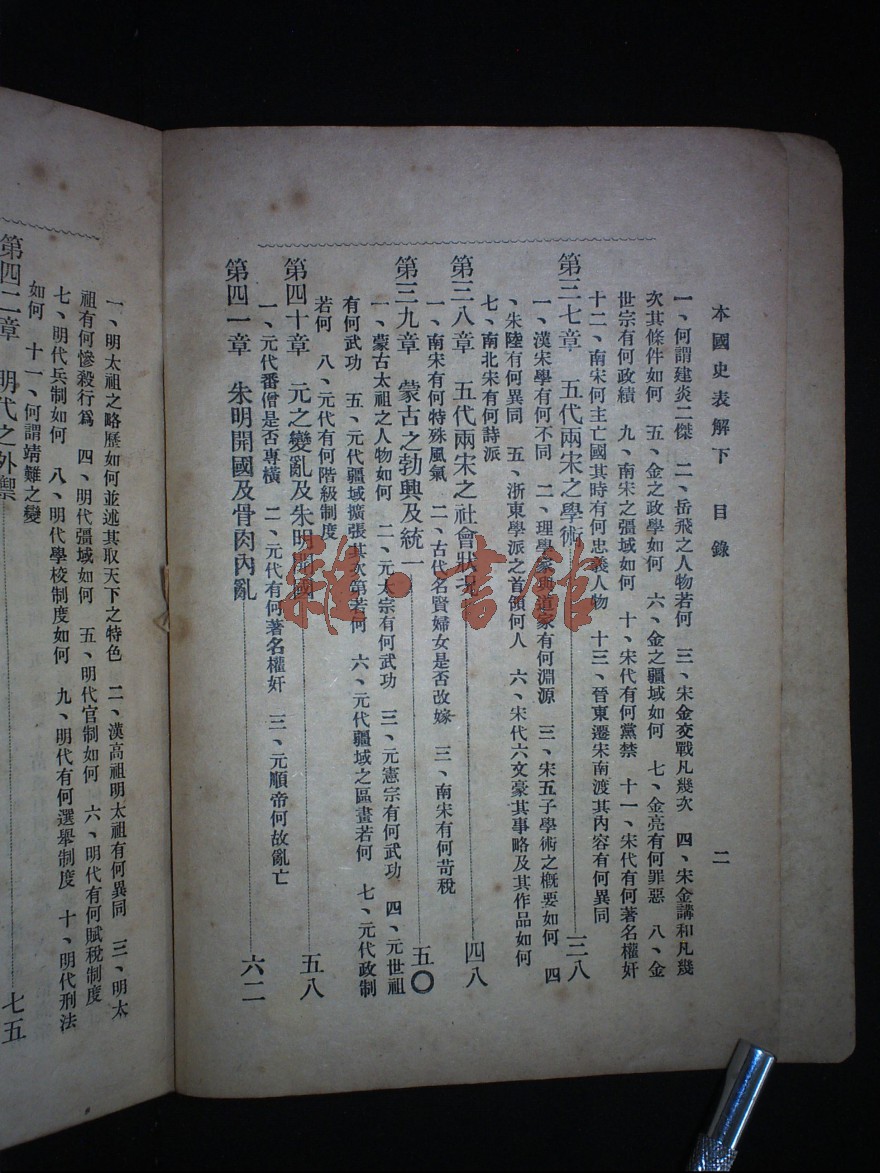 本國史表解下 目錄 二
一、何謂建炎二傑 二、岳飛之人物若何 三、宋金交戰凡幾次 四、宋金講和凡幾
次其條件如何 五、金之政學如何 六、金之疆域如何 七、金亮有何罪惡 八、金
世宗有何政績 九、南宋之彊域如何 十、宋代有何黨禁 十一、宋代有何著名權奸
十二、南宋何主亡國其時有何忠義人物 十三、晉東遷宋南渡其內容有何異同
第三七章 五代兩宋之學術 三八
一、漢宋學有何不同 二、理學家與道家有何淵源 三、宋五子學術之概要如何 四
、朱陸有何異同 五、浙東學派之首領何人 六、宋代六文豪其事略及其作品如何
七、南北宋有何詩派
第三八章 五代兩宋之社會狀況 四八
一、南宋有何特殊風氣 二、古代名賢婦女是否改嫁 三、南宋有何苛稅
第三九章 蒙古之勃興及統一 五〇
一、蒙古太祖之人物如何 二、元太宗有何武功 三、元憲宗有何武功 四、元世祖
有何武功 五、元代疆域擴張其次第若何 六、元代疆域之區畫若何 七、元代政制
若何 八、元代有何階級制度
第四十章 元之變亂及朱明開國 五八
一、元代番僧是否專橫 二、元代有何著名權奸 三、元順帝何故亂亡
第四一章 朱明開國及骨肉內亂 六二
一、明太祖之略歷如何並述其取天下之特色 二、漢高祖明太祖有何異同 三、明太
祖有何慘殺行爲 四、明代彊域如何 五、明代官制如何 六、明代有何賦稅制度
七、明代兵制如何 八、明代學校制度如何 九、明代有何選舉制度 十、明代刑法
如何 十一、何謂靖難之變
第四二章 明代之外禦 七五
雜·書館